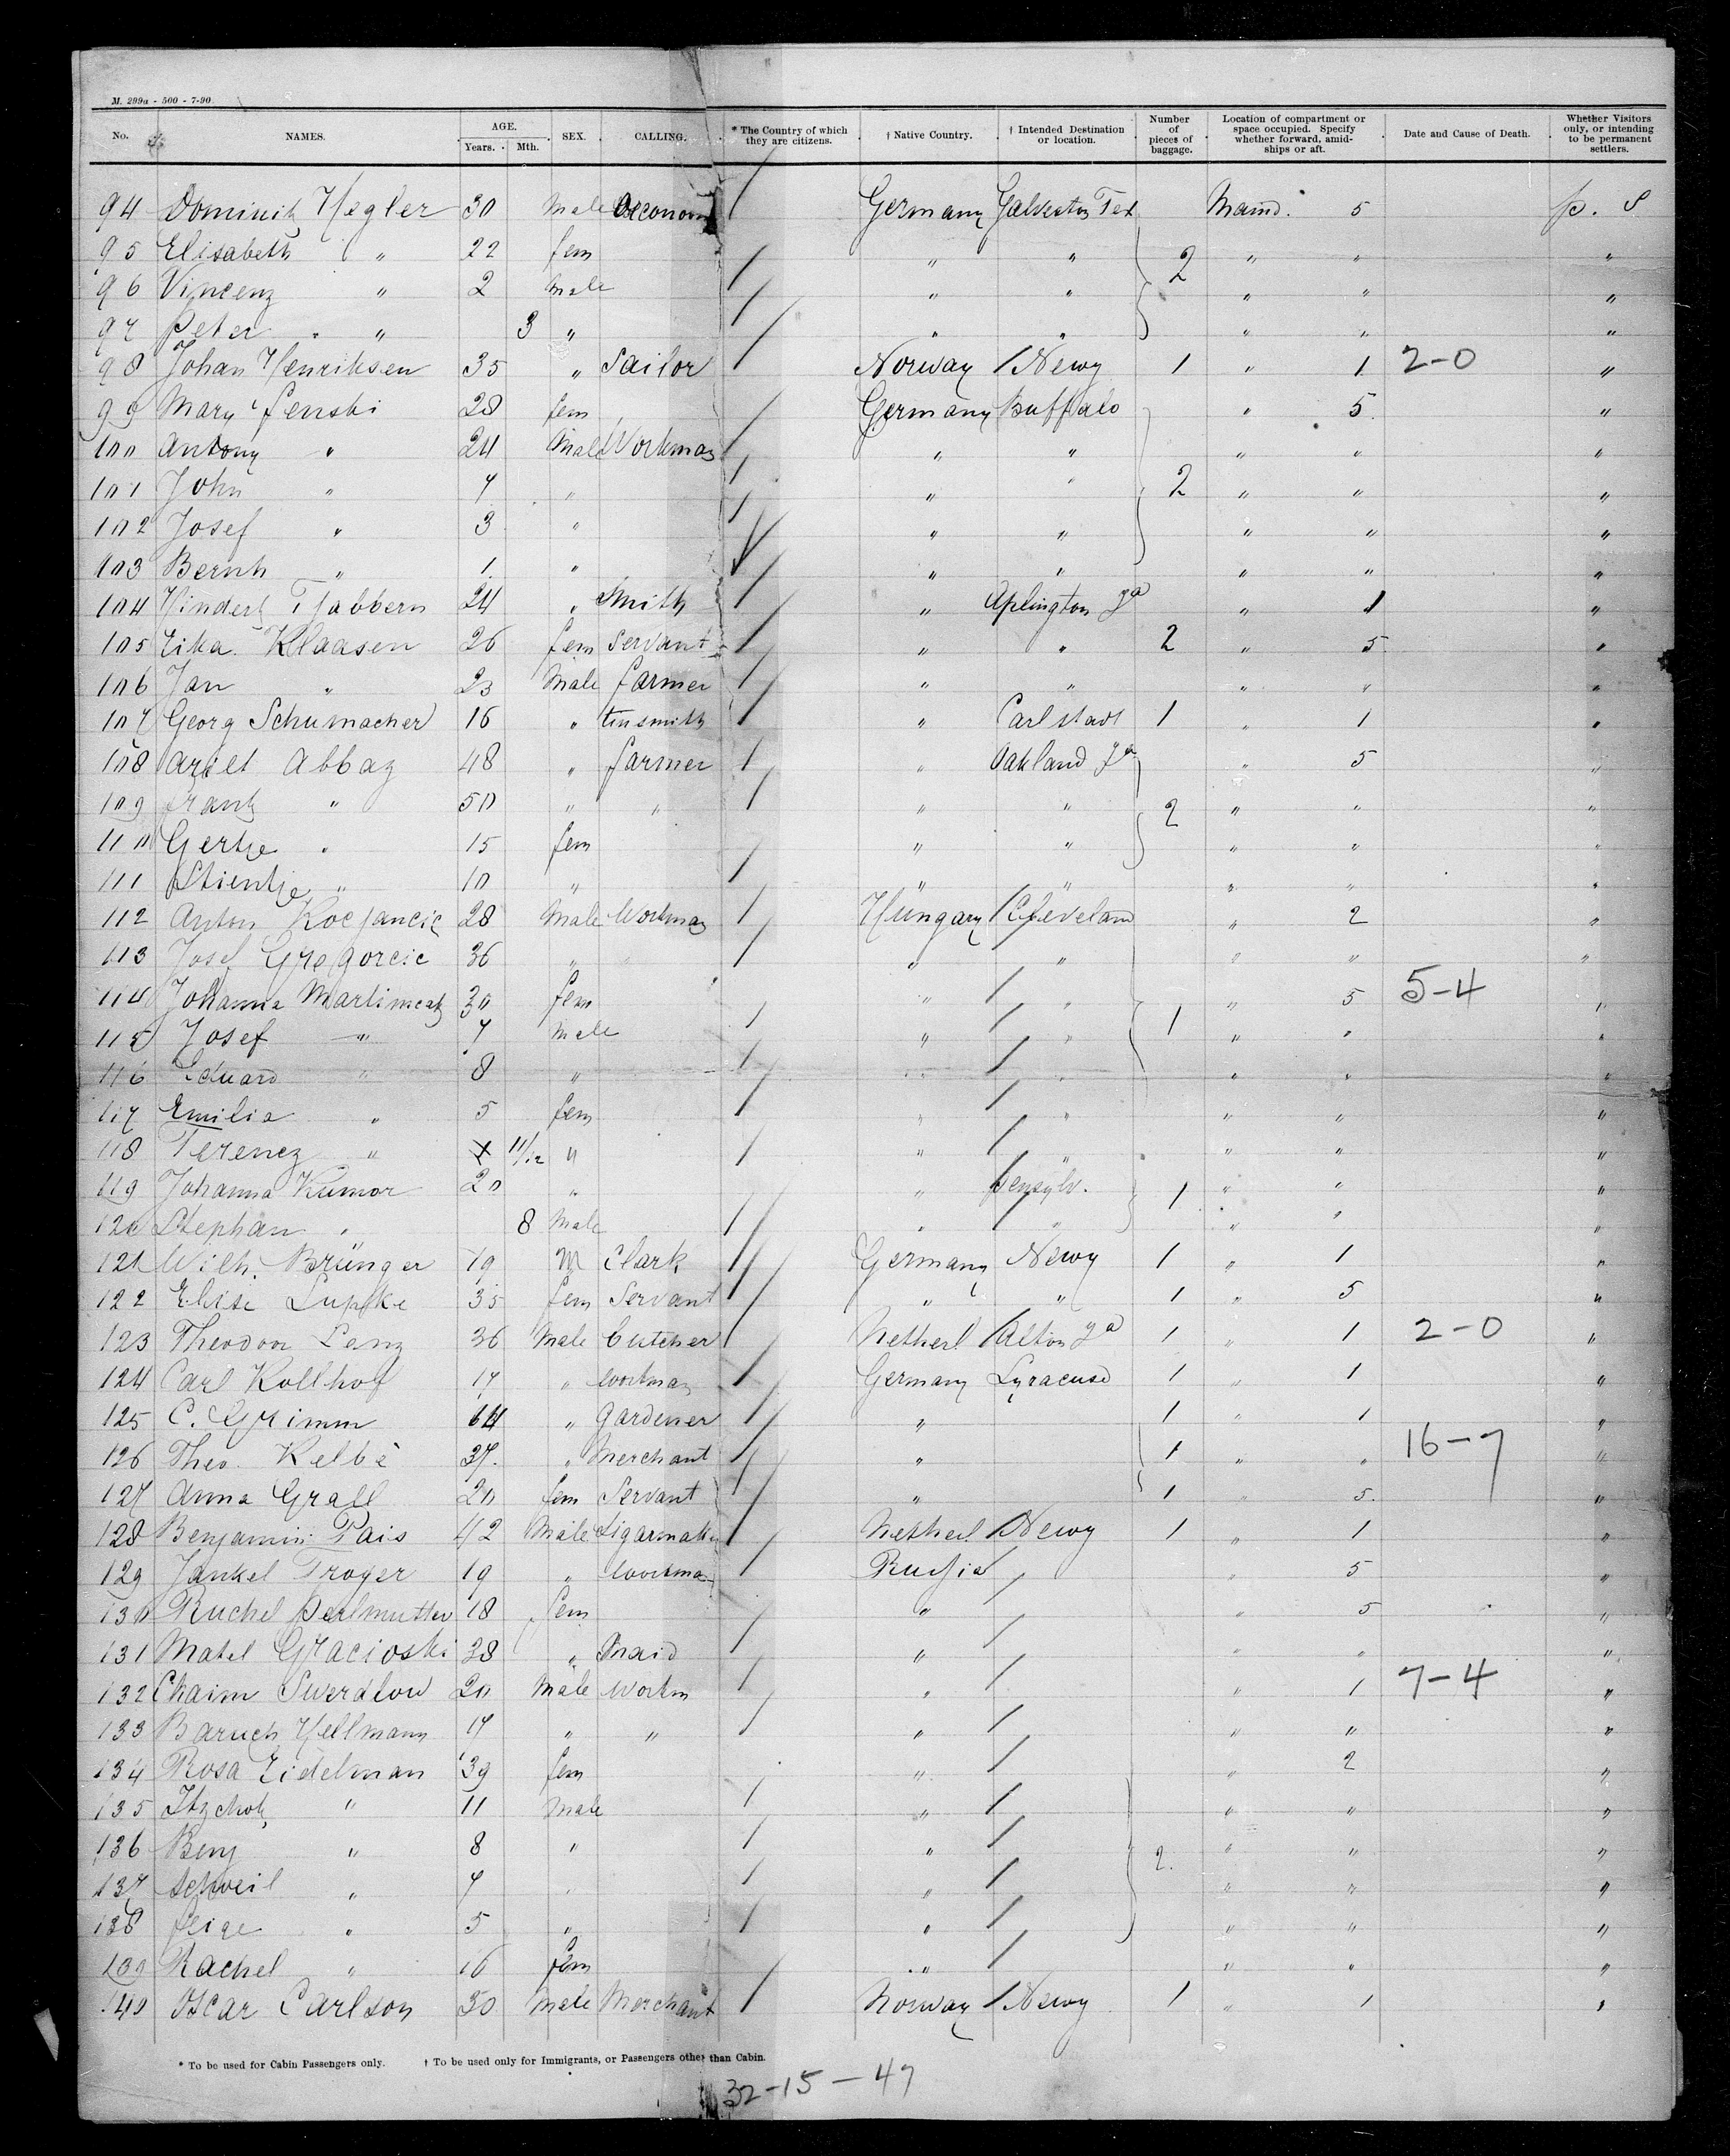 M. 299a - 500 - 7-90
No. NAMES. AGE. Years. Mth. SEX. CALLING. * The Country of which they are citizens. † Native Country. † Intended Destination or location. Number of pieces of baggage. Location of compartment or space occupied. Specify whether forward, amidships or aft. Date and Cause of Death. Whether Visitors only, or intending to be permanent settlers.
94 Dominik Hegler 30 Male Oeconom / Germany Galveston Tex 5 p. S
95 Elisabeth " 22 fem / " " 2 " " "
96 Vincenz " 2 male / " " " " "
97 Peter " " 3 " / " " " " "
98 Johan Henriksen 35 " Sailor / Norway / Newy 1 " 1 2-0 "
99 Mary fenski 28 fem / Germany Buffalo " 5 "
100 Antony " 24 Male Workman / " " " " "
101 John " 7 " / " " 2 " " "
102 Josef " 3 " / " " " " "
103 Bernh " 1 " " " " " "
104 Hinderk Tjabbern 24 " Smith / " Aplington Ja " 1 "
105 Eika Klaasen 26 fem Servant / " " 2 " 5 "
106 Jan " 23 Male farmer / " " " " "
107 Georg Schumacher 16 " tinsmith / " Carlstadt 1 " 1 "
108 Ariet Abbaz 48 " farmer / " Oakland Ja " 5 "
109 frantz " 50 " " / " " 2 " " "
110 Gertje " 15 fem " " " " "
111 Stientje " 10 " / " " " " "
112 Anton Kocjancic 28 Male Workman / Hungary / Cleveland " 2 "
113 Josef Gregorcic 36 " " / " " " " "
114 Johanna Martinicak 30 fem " / " " 5 5-4 "
115 Josef " 7 male / " / " 1 " " "
116 Eduard " 8 " / " / " " " "
117 Emilia " 5 fem / / " " " "
118 Terencz " 11/12 " / " / " " " "
119 Johanna Kumor 20 " " Pensylv. 1 " " "
120 Stephan " 8 Male / " / " " " "
121 Wilh. Brünger 19 M Clark / Germany Newy 1 " 1 "
122 Elise Lupke 35 fem Servant / " " 1 " 5 "
123 Theodoor Lenz 36 Male butcher / Netherl / Alton Ja 1 " 1 2-0 "
124 Carl Kollhof 17 " workman / Germany Syracuse 1 " 1 "
125 C. Grimm 64 " Gardener / " 1 " 1 "
126 Theo. Kelbé 37. " Merchant / " 1 " " 16-7 "
127 Anna Grall 20 fem Servant / " 1 " 5. "
128 Benjamin Pais 42 Male Sigarmaker / Netherl / Newy 1 " 1 "
129 Jankel Troger 19 " workman / Russia / " 5 "
130 Ruchel Perlmutter 18 fem " / " 5 "
131 Matel Gracioski 38 " Maid / " / " " "
132 Chaim Swerdlow 20 Male Workm / " / " 1 7-4 "
133 Baruch Hellmann 17 " " / " / " " "
134 Rosa Eidelman 39 fem " / " 2 "
135 Itzchok " 11 male / " / " " "
136 Benj " 8 " / " / 2. " " "
137 " 7 " / " / " " "
138 feige " 5 " / " / " " "
139 Rachel " 16 fem " / " " "
140 Oscar Carlson 30 male Merchant / Norway / Newy 1 " 1 "
* To be used for Cabin Passengers only. † To be used only for Immigrants, or Passengers other than Cabin.
32-15-47